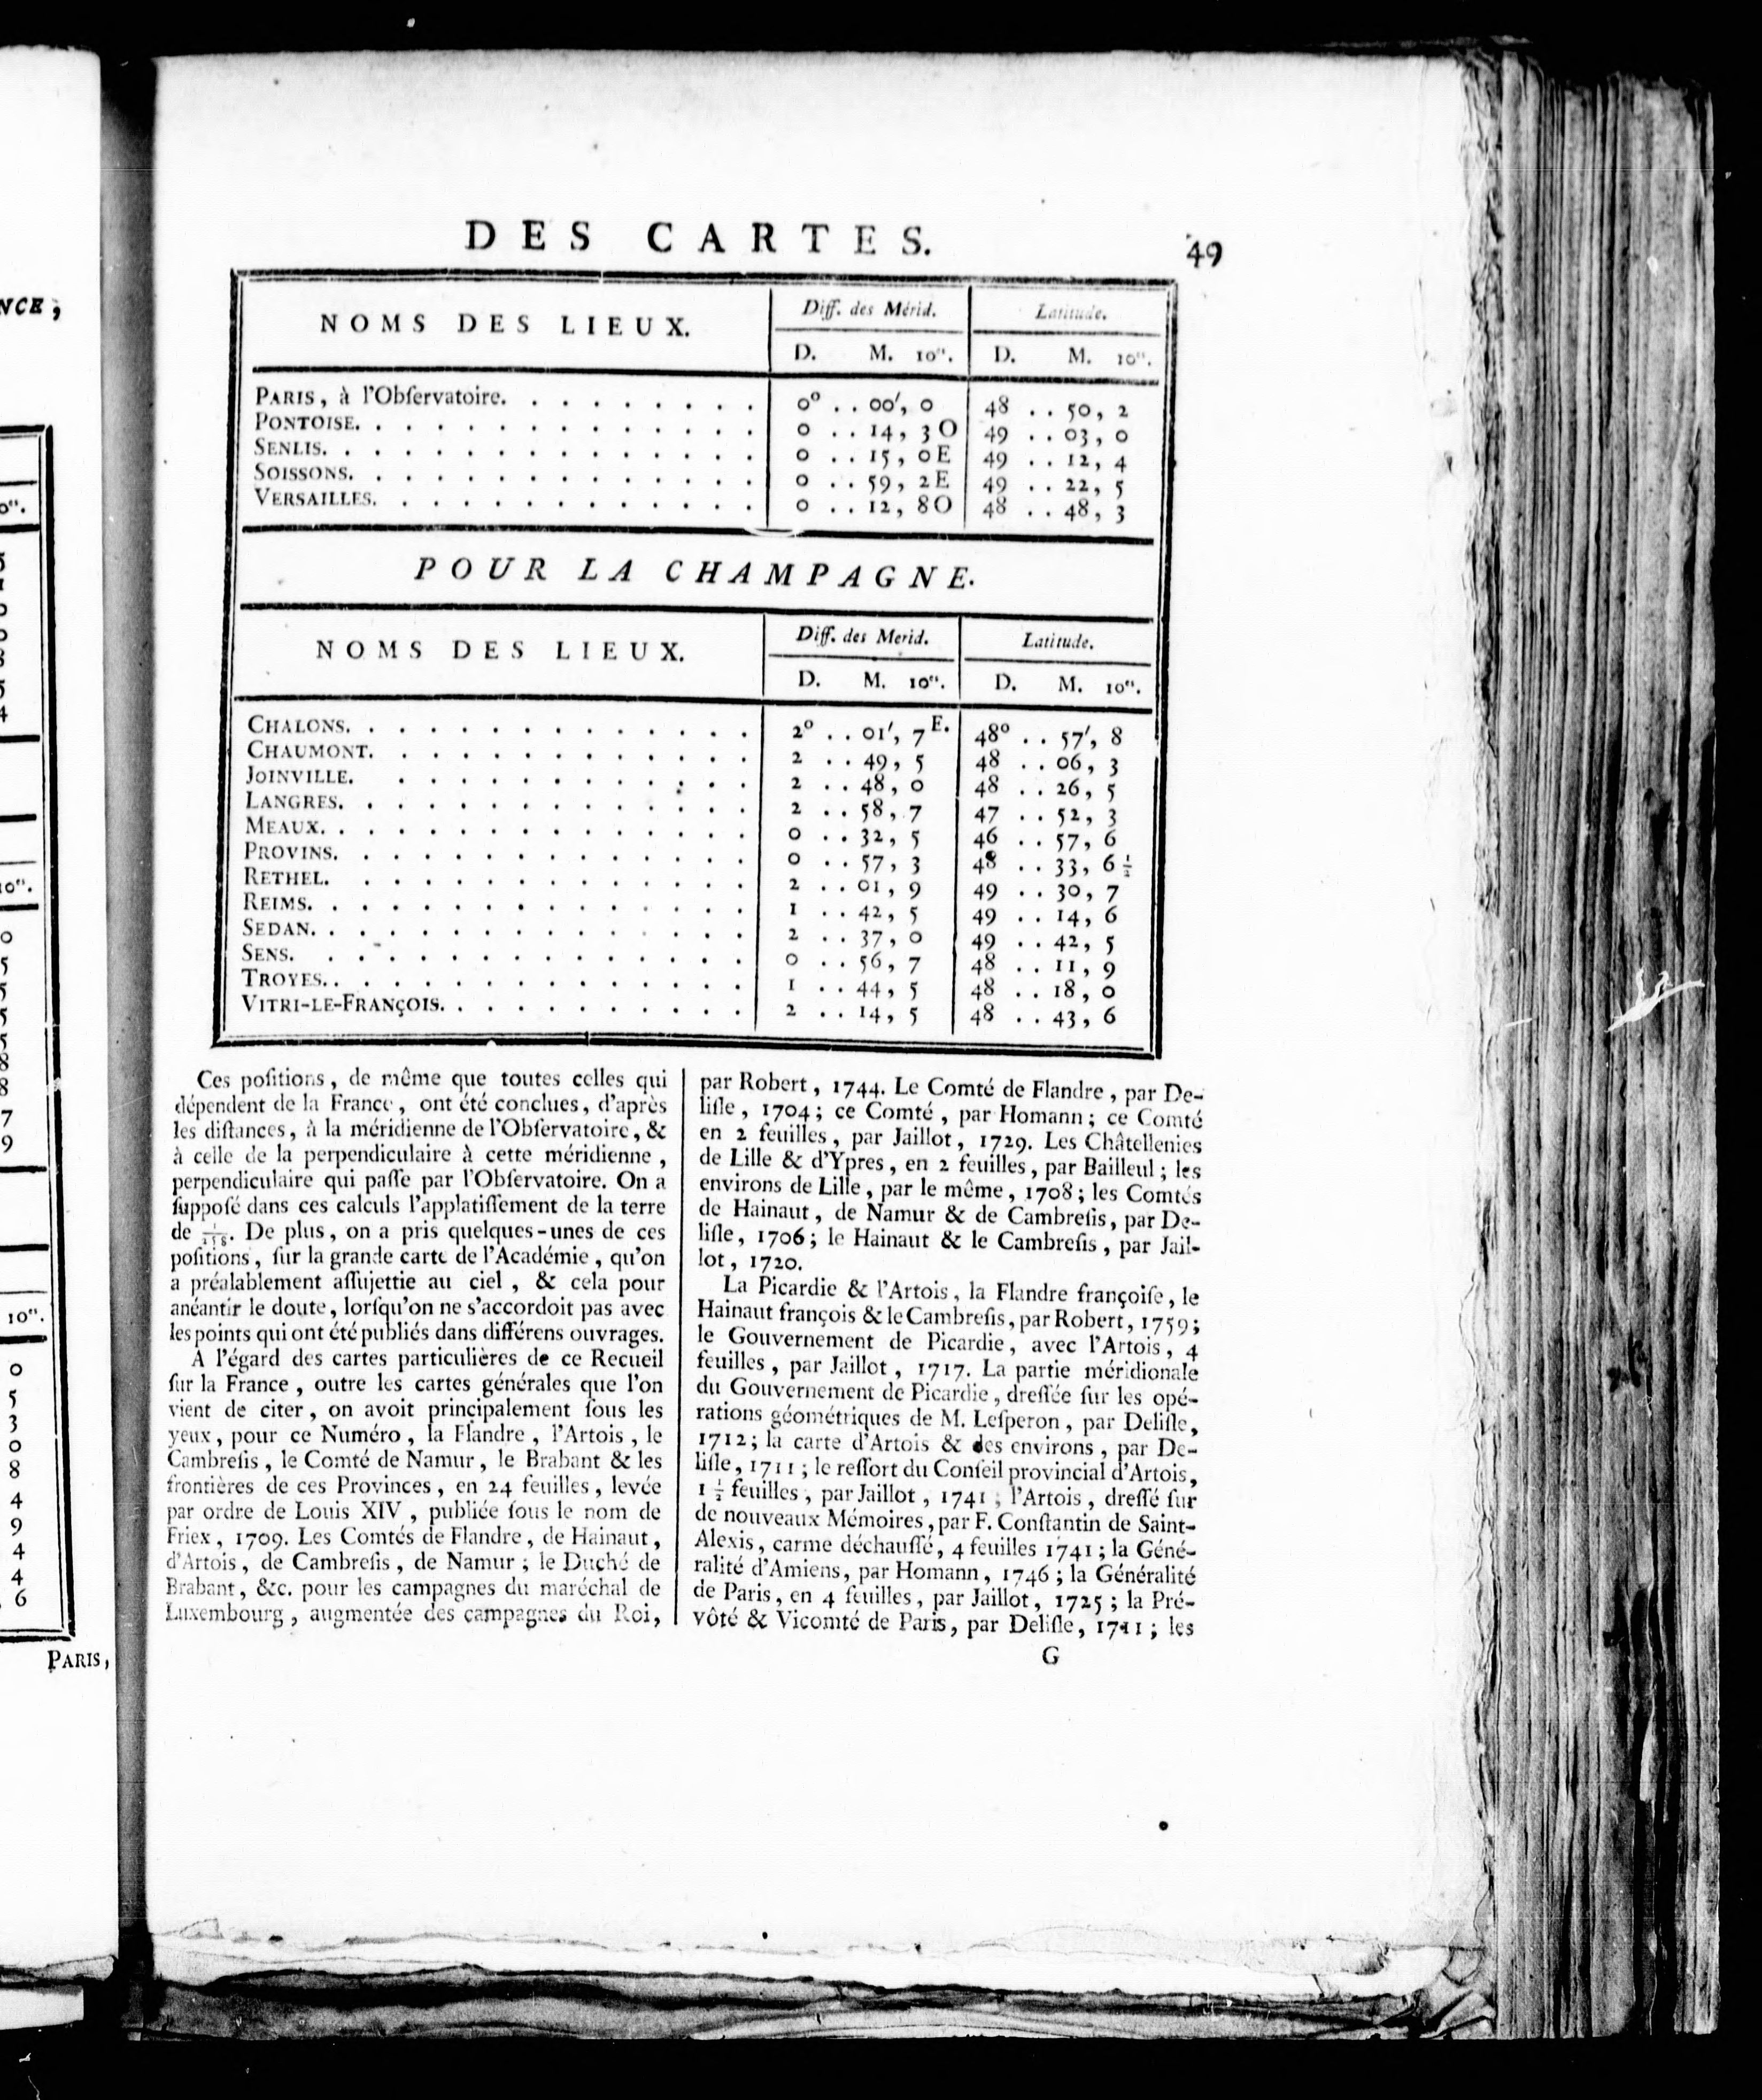 DES CARTES.
49
NOMS DES LIEUX. Diff. des Mérid. Latitude.
D. M. 10". D. M. 10".
PARIS, à l'Obſervatoire. . . . . . . . . 0° . . 00', 0 48 . . 50, 2
PONTOISE. . . . . . . . . . . . . . 0 . . 14, 3 O 49 . . 03, 0
SENLIS. . . . . . . . . . . . . . . 0 . . 15, 0 E 49 . . 12, 4
SOISSONS. . . . . . . . . . . . . . 0 . . 59, 2 E 49 . . 22, 5
VERSAILLES. . . . . . . . . . . . . 0 . . 12, 8 O 48 . . 48, 3
POUR LA CHAMPAGNE.
NOMS DES LIEUX. Diff. des Merid. Latitude.
D. M. 10". D. M. 10".
CHALONS. . . . . . . . . . . . . . 2° . . 01', 7 E. 48° . . 57', 8
CHAUMONT. . . . . . . . . . . . . 2 . . 49, 5 48 . . 06, 3
JOINVILLE. . . . . . . . . . . . . 2 . . 48, 0 48 . . 26, 5
LANGRES. . . . . . . . . . . . . . 2 . . 58, 7 47 . . 52, 3
MEAUX. . . . . . . . . . . . . . . 0 . . 32, 5 46 . . 57, 6
PROVINS. . . . . . . . . . . . . . 0 . . 57, 3 48 . . 33, 6 ½
RETHEL. . . . . . . . . . . . . . 2 . . 01, 9 49 . . 30, 7
REIMS. . . . . . . . . . . . . . . 1 . . 42, 5 49 . . 14, 6
SEDAN. . . . . . . . . . . . . . . 2 . . 37, 0 49 . . 42, 5
SENS. . . . . . . . . . . . . . . 0 . . 56, 7 48 . . 11, 9
TROYES. . . . . . . . . . . . . . . 1 . . 44, 5 48 . . 18, 0
VITRI-LE-FRANÇOIS. . . . . . . . . . . 2 . . 14, 5 48 . . 43, 6
Ces poſitions, de même que toutes celles qui
dépendent de la France, ont été conclues, d'après
les diſtances, à la méridienne de l'Obſervatoire, &
à celle de la perpendiculaire à cette méridienne,
perpendiculaire qui paſſe par l'Obſervatoire. On a
ſuppoſé dans ces calculs l'applatiſſement de la terre
de . De plus, on a pris quelques-unes de ces
poſitions, ſur la grande carte de l'Académie, qu'on
a préalablement aſſujettie au ciel, & cela pour
anéantir le doute, lorſqu'on ne s'accordoit pas avec
les points qui ont été publiés dans différens ouvrages.
A l'égard des cartes particulières de ce Recueil
ſur la France, outre les cartes générales que l'on
vient de citer, on avoit principalement ſous les
yeux, pour ce Numéro, la Flandre, l'Artois, le
Cambreſis, le Comté de Namur, le Brabant & les
frontières de ces Provinces, en 24 feuilles, levée
par ordre de Louis XIV, publiée ſous le nom de
Friex, 1709. Les Comtés de Flandre, de Hainaut,
d'Artois, de Cambreſis, de Namur; le Duché de
Brabant, &c. pour les campagnes du maréchal de
Luxembourg, augmentée des campagnes du Roi,
par Robert, 1744. Le Comté de Flandre, par De-
liſle, 1704; ce Comté, par Homann; ce Comté
en 2 feuilles, par Jaillot, 1729. Les Châtellenies
de Lille & d'Ypres, en 2 feuilles, par Bailleul; les
environs de Lille, par le même, 1708; les Comtés
de Hainaut, de Namur & de Cambreſis, par De-
liſle, 1706; le Hainaut & le Cambreſis, par Jail-
lot, 1720.
La Picardie & l'Artois, la Flandre françoiſe, le
Hainaut françois & le Cambreſis, par Robert, 1759;
le Gouvernement de Picardie, avec l'Artois, 4
feuilles, par Jaillot, 1717. La partie méridionale
du Gouvernement de Picardie, dreſſée ſur les opé-
rations géométriques de M. Leſperon, par Deliſle,
1712; la carte d'Artois & des environs, par De-
liſle, 1711; le reſſort du Conſeil provincial d'Artois,
1 ½ feuilles, par Jaillot, 1741; l'Artois, dreſſé ſur
de nouveaux Mémoires, par F. Conſtantin de Saint-
Alexis, carme déchauſſé, 4 feuilles 1741; la Géné-
ralité d'Amiens, par Homann, 1746; la Généralité
de Paris, en 4 feuilles, par Jaillot, 1725; la Pré-
vôté & Vicomté de Paris, par Deliſle, 1711; les
G
PARIS,